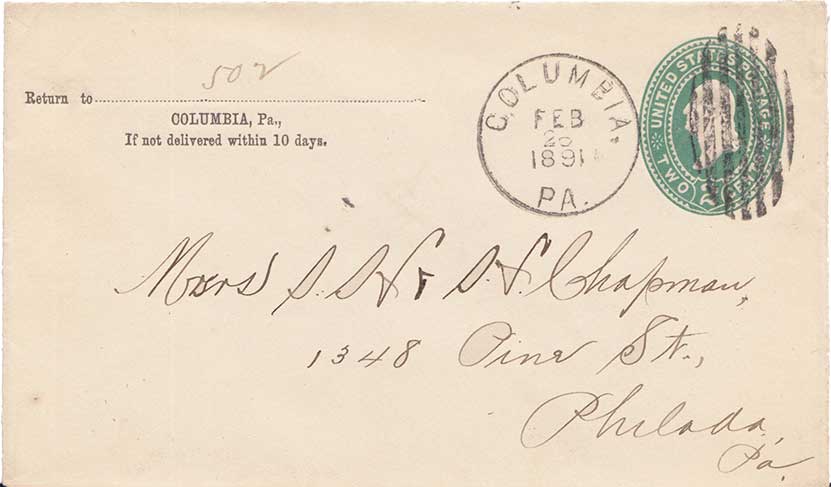 502
Return to
COLUMBIA, Pa.,
If not delivered within 10 days.
COLUMBIA.
FEB
1891
PA.
UNITED STATES POSTAGE
TWO 2 CENTS
Chapman,
1348 Pine St.,
Philada,
Pa.